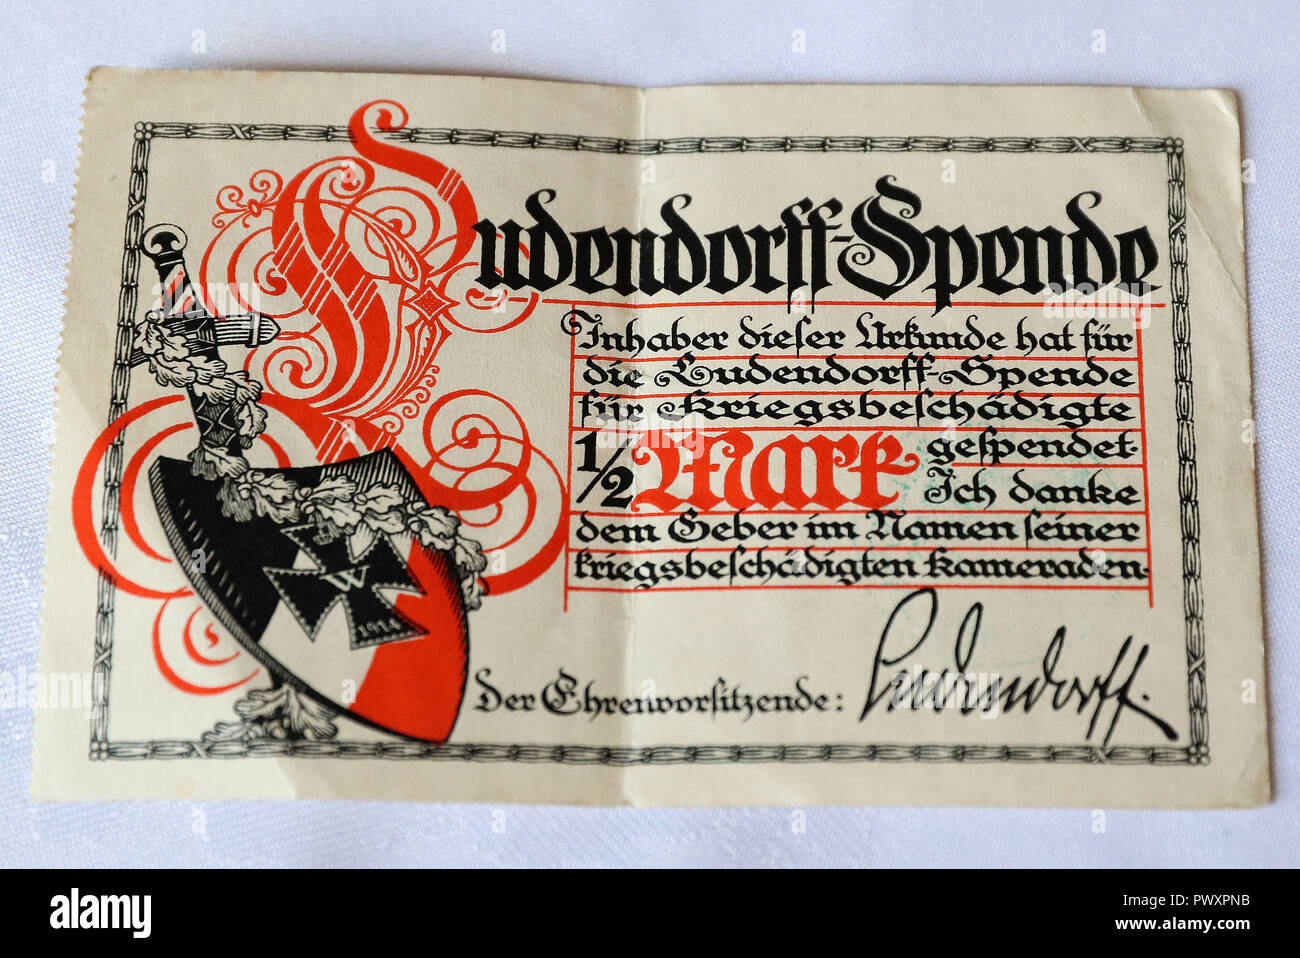 Ludendorff-Spende
Inhaber dieser Urkunde hat für
die Ludendorff-Spende
für Kriegsbeschädigte
1/2 Mark gespendet.
Ich danke
dem Geber im Namen seiner
kriegsbeschädigten Kameraden.
W
1914
Der Ehrenvorsitzende: Ludendorff.
alamy
a
alamy stock photo
PWXPNB
www.alamy.com